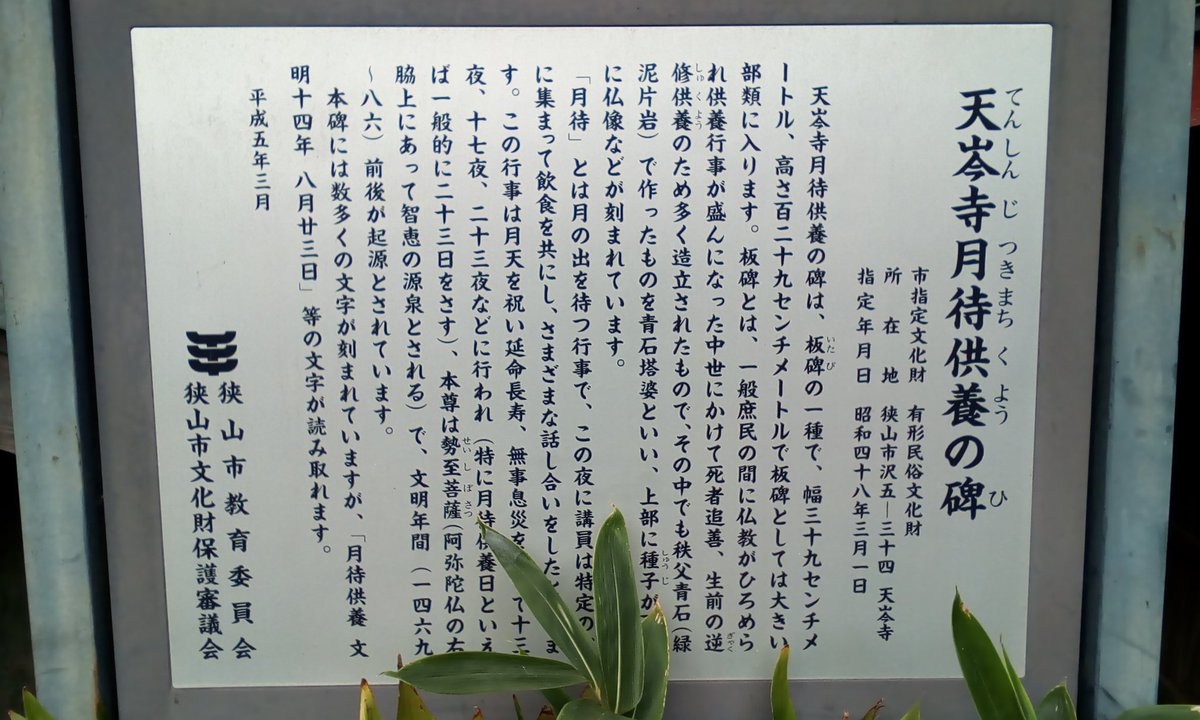 天岑寺月待供養の碑
てんしんじつきまちくようひ
市指定文化財　有形民俗文化財
所在地　狭山市沢五―三十四　天岑寺
指定年月日　昭和四十八年三月一日
天岑寺月待供養の碑は、板碑の一種で、幅三十九センチメ
いたび
ートル、高さ百二十九センチメートルで板碑としては大きい
部類に入ります。板碑とは、一般庶民の間に仏教がひろめら
れ供養行事が盛んになった中世にかけて死者追善、生前の逆
ぎゃく
修供養のため多く造立されたもので、その中でも秩父青石（緑
しゅくよう
泥片岩）で作ったものを青石塔婆といい、上部に種子が
しゅうじ
に仏像などが刻まれています。
「月待」とは月の出を待つ行事で、この夜に講員は特定の
に集まって飲食を共にし、さまざまな話し合いをした
ま
す。この行事は月天を祝い延命長寿、無事息災を
て十三
夜、十七夜、二十三夜などに行われ（特に月待供養日といえ
ば一般的に二十三日をさす）、本尊は勢至菩薩（阿弥陀仏の右
せいしぼさつ
脇上にあって智恵の源泉とされる）で、文明年間（一四六九
～八六）前後が起源とされています。
本碑には数多くの文字が刻まれていますが、「月待供養　文
明十四年　八月廿三日」等の文字が読み取れます。
平成五年三月
狭山市教育委員会
狭山市文化財保護審議会